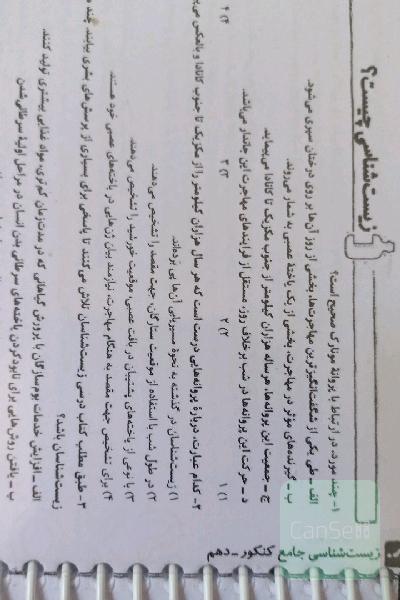 زیست‌شناسی جامع کنکور ـ دهم
زیست‌شناسی چیست؟
۱- چند مورد، در ارتباط با پروانهٔ مونارک صحیح است؟
الف ـ طی یکی از شگفت‌انگیزترین مهاجرت‌ها، بخشی از روز آن‌ها بر روی درختان سپری می‌شود.
ب ـ گیرنده‌های مؤثر در مهاجرت، بخشی از یک یاختهٔ عصبی به شمار می‌روند.
ج ـ جمعیت این پروانه‌ها، هرساله هزاران کیلومتر از جنوب مکزیک تا کانادا می‌پیماید.
د ـ حرکت این پروانه‌ها در شب برخلاف روز، مستقل از فرایندهای مهاجرت این جاندار می‌باشد.
۱) ۱ ۲) ۲ ۳) ۳ ۴) ۴
۲- کدام عبارت، دربارهٔ پروانه‌هایی درست است که هر سال هزاران کیلومتر را از مکزیک تا جنوب کانادا و بالعکس
۱) زیست‌شناسان در گذشته به نحوهٔ مسیریابی آن‌ها پی برده‌اند.
۲) در طول شب با استفاده از موقعیت ستارگان، جهت مقصد را تشخیص می‌دهند.
۳) با نوعی از یاخته‌های پشتیبان در بافت عصبی، موقعیت خورشید را تشخیص می‌دهند.
۴) برای تشخیص جهت مقصد به هنگام مهاجرت، نیازمند بیان ژن‌هایی در یاخته‌های عصبی خود هستند.
۳- طبق مطلب کتاب درسی زیست‌شناسان تلاش می‌کنند تا پاسخی برای بسیاری از پرسش‌های بشری بیابند. چند
زیست‌شناسان باشد؟
الف ـ افزایش خدمات بوم‌سازگان با پرورش گیاهانی که در مدت‌زمان کم‌تری، مواد غذایی بیشتری تولید کنند.
ب ـ یافتن روش‌هایی برای نابودکردن یاخته‌های سرطانی بدن انسان در مراحل اولیهٔ سرطانی‌شدن
CanSell